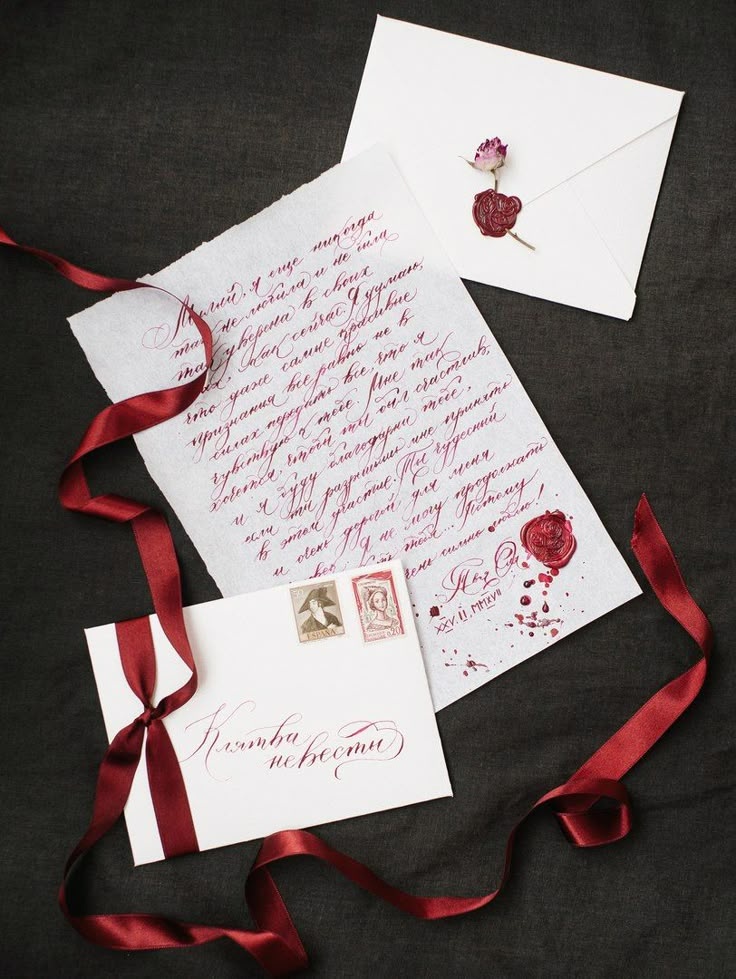 Милый, я еще никогда
так не любила и не была
так уверена в своих
как сейчас. Я думаю,
что даже самые красивые
признания все равно не в
силах передать все, что я
чувствую к тебе. Мне так
хочется, чтобы ты был счастлив,
и я буду благодарна тебе,
если ты разрешишь мне принять
в этом участие. Ты чудесный
и очень дорогой для меня
Я не могу продолжать
без тебя... Потому
очень сильно люблю!
XXV.II.MMXVII
ESPAÑA
0,20
Клятва
невесты